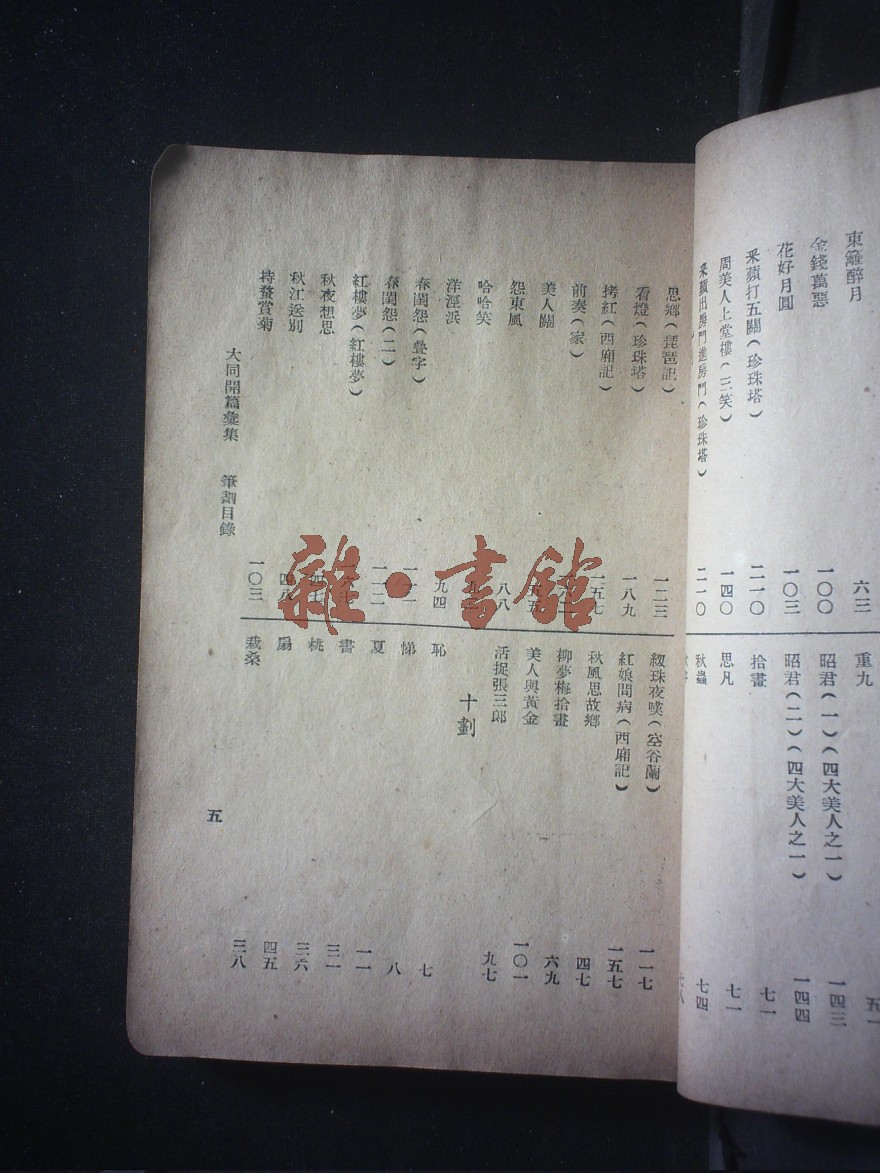 東籬醉月 六三
金錢萬惡 一〇〇
花好月圓 一〇三
釆蘋打五關(珍珠塔) 二一〇
周美人上堂樓(三笑) 一四〇
釆蘋出房門進房門(珍珠塔) 二一〇
重九 五一
昭君(一)(四大美人之一) 一四三
昭君(二)(四大美人之一) 一四四
拾畫 七一
思凡 七一
秋蟲 七四
思鄉(琵琶記) 一二三
看燈(珍珠塔) 一八九
拷紅(西廂記) 一五七
前奏(家)
美人關
怨東風 八八
哈哈笑
洋涇浜 九四
春閨怨(疊字)
春閨怨(二)
紅樓夢(紅樓夢)
秋夜想思
秋江送別
持螯賞菊 一〇三
釵珠夜嘆(空谷蘭) 一一七
紅娘問病(西廂記) 一五七
秋風思故鄉 四七
柳夢梅拾畫 六九
美人與黃金 一〇一
活捉張三郎 九七
十劃
恥 七
悌 八
夏 一一
書 三一
桃 三六
扇 四五
栽桑 三八
大同開篇彙集 筆劃目錄
五
雜·書館